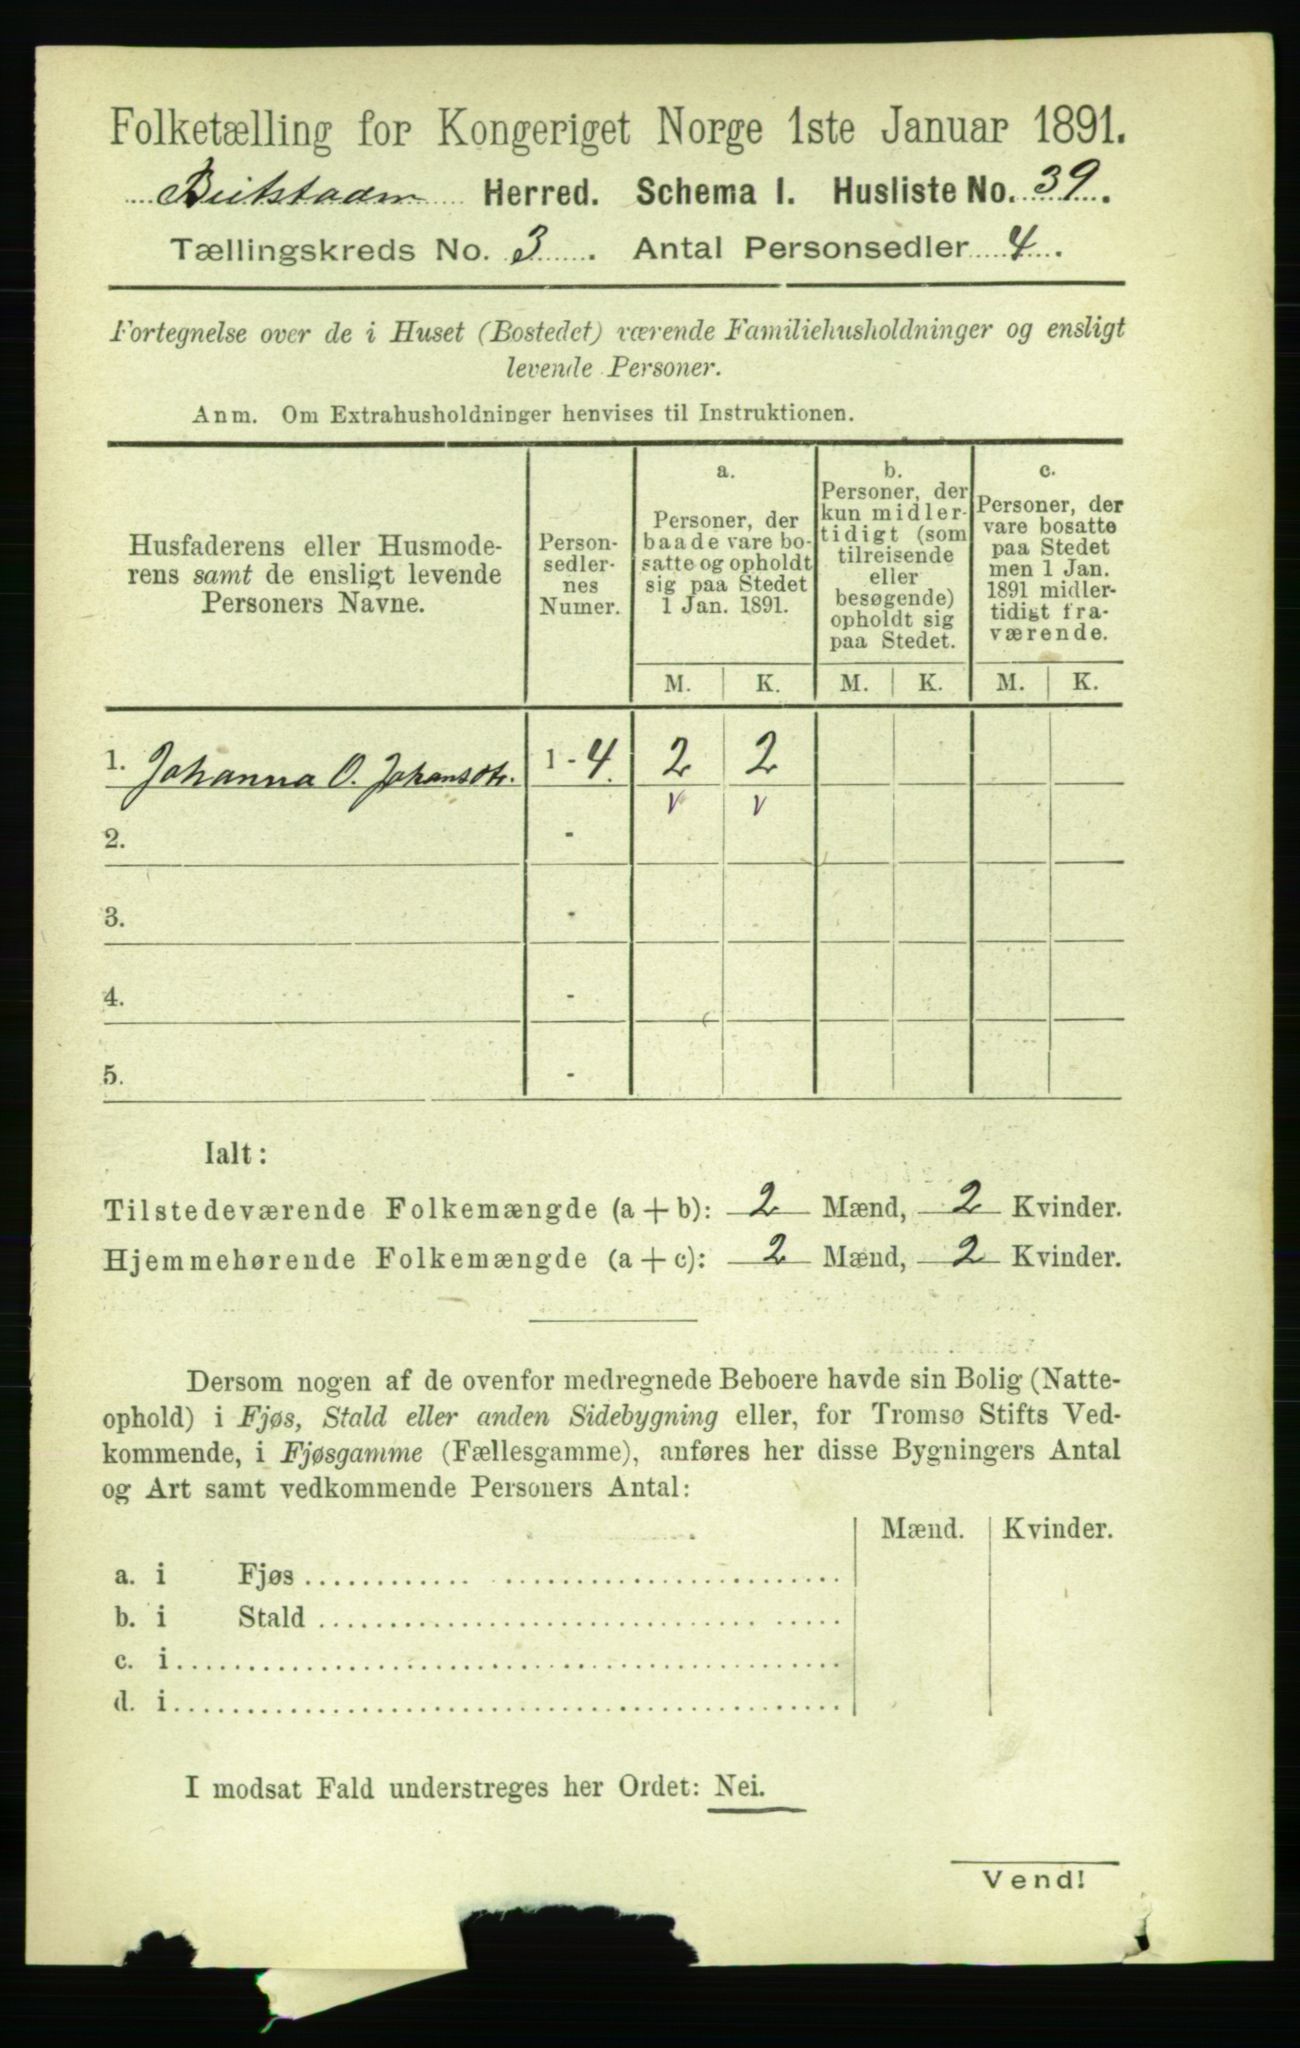 Folketælling for Kongeriget Norge 1ste Januar 1891.
Beitstaden Herred. Schema I. Husliste No. 39.
Tællingskreds No. 3. Antal Personsedler 4.
Fortegnelse over de i Huset (Bostedet) værende Familiehusholdninger og ensligt
levende Personer.
Anm. Om Extrahusholdninger henvises til Instruktionen.
Husfaderens eller Husmode-
rens samt de ensligt levende
Personers Navne.
Person-
sedler-
nes
Numer.
a.
Personer, der
baade vare bo-
satte og opholdt
sig paa Stedet
1 Jan. 1891.
b.
Personer, der
kun midler-
tidigt (som
tilreisende
eller
besøgende)
opholdt sig
paa Stedet.
c.
Personer, der
vare bosatte
paa Stedet
men 1 Jan.
1891 midler-
tidigt fra-
værende.
M. K. M. K. M. K.
1. Johanna O. Johansdtr. 1 - 4. 2 2
v v
2. -
3. -
4. -
5. -
Ialt:
Tilstedeværende Folkemængde (a + b): 2 Mænd, 2 Kvinder.
Hjemmehørende Folkemængde (a + c): 2 Mænd, 2 Kvinder.
Dersom nogen af de ovenfor medregnede Beboere havde sin Bolig (Natte-
ophold) i Fjøs, Stald eller anden Sidebygning eller, for Tromsø Stifts Ved-
kommende, i Fjøsgamme (Fællesgamme), anføres her disse Bygningers Antal
og Art samt vedkommende Personers Antal:
Mænd. Kvinder.
a. i Fjøs
b. i Stald
c. i
d. i
I modsat Fald understreges her Ordet: Nei.
Vend!